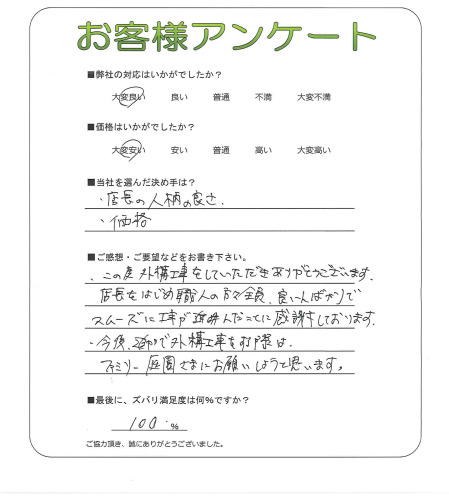 お客様アンケート
■弊社の対応はいかがでしたか？
大変良い 良い 普通 不満 大変不満
■価格はいかがでしたか？
大変安い 安い 普通 高い 大変高い
■当社を選んだ決め手は？
・店長の人柄の良さ．
・価格
■ご感想・ご要望などをお書き下さい。
・この度外構工事をしていただきありがとうございます．
店長をはじめ職人の方々全員、良い人ばかりで
スムーズに工事が進んだことに感謝しております．
・今後、で外構工事をする際は、
ファミリー庭園さまにお願いしようと思います。
■最後に、ズバリ満足度は何％ですか？
100.％
ご協力頂き、誠にありがとうございました。